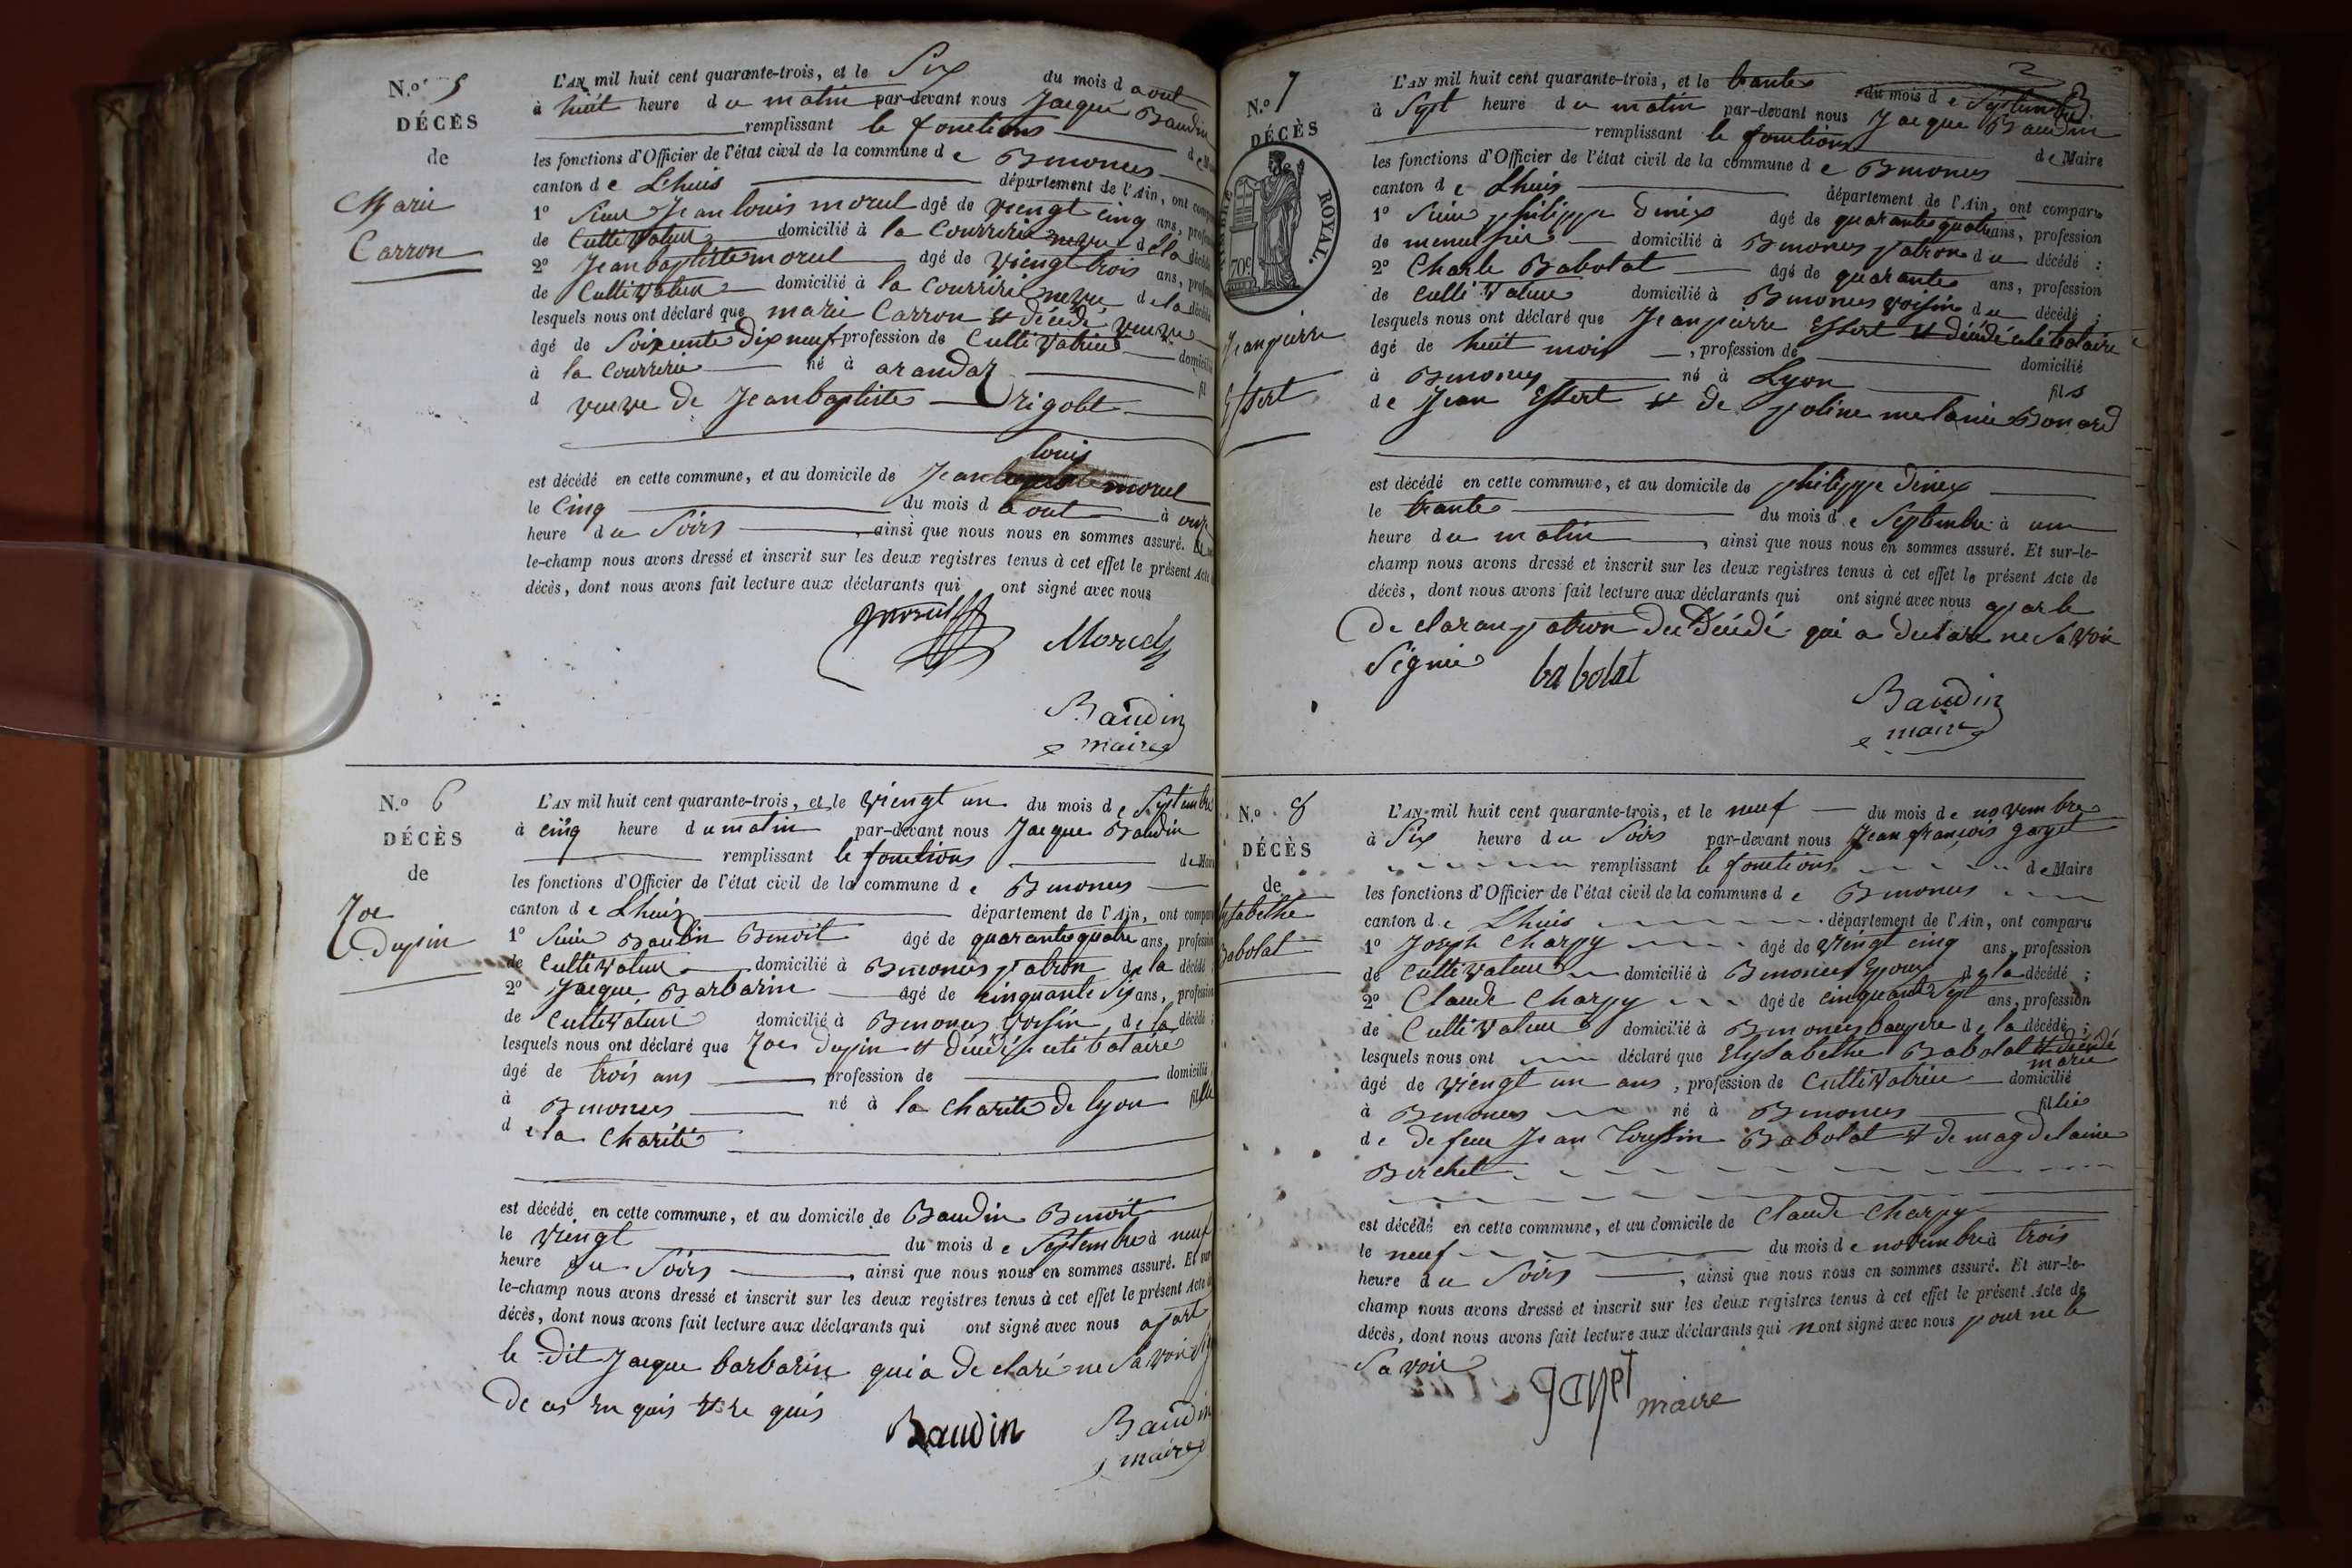 N.º 5
DÉCÈS
de
Marie
Carron
L'AN mil huit cent quarante-trois, et le Six du mois d aout
à huit heure du matin par-devant nous Jacque Baudin
remplissant le fonctions de
les fonctions d'Officier de l'état civil de la commune de Benonces
canton de Lhuis département de l'Ain, ont
1º Sieur Jean louis morel âgé de viengt cinq ans,
de Cultivateur domicilié à la Courrerie neveu de la
2º Jean baptiste morel âgé de viengt trois ans,
de Cultivateur domicilié à la Courrerie neveu de la
lesquels nous ont déclaré que marie Carron et décédé veuve
âgé de Soixente dix neuf profession de Cultivatrice
à la Courrerie né à arandaz
d veuve de Jean baptiste Trigolet
louis
est décédé en cette commune, et au domicile de Jean morel
le Cinq du mois d aout à onze
heure du Soirs ainsi que nous nous en sommes assuré. Et
le-champ nous avons dressé et inscrit sur les deux registres tenus à cet effet le présent Acte
décès, dont nous avons fait lecture aux déclarants qui ont signé avec nous
Morel
Baudin
maire
N.º 6
DÉCÈS
de
Zoe
Dupin
L'AN mil huit cent quarante-trois, et le viengt un du mois de Septembre
à cinq heure du matin par-devant nous Jacque Baudin
remplissant le fonctions de
les fonctions d'Officier de l'état civil de la commune de Benonces
canton de Lhuis département de l'Ain, ont
1º Sieur Baudin Benoit âgé de quarante quatre ans, profession
de Cultivateur domicilié à Benonces patron de la décédé
2º Jacque Barbarin âgé de cinquante Six ans, profession
de Cultivateur domicilié à Benonces voisin de la décédé
lesquels nous ont déclaré que Zoe Dupin et décédé celibataire
âgé de trois ans profession de domicilié
à Benonces né à la Charité de lyon fille
de la Charité
est décédé en cette commune, et au domicile de Baudin Benoit
le viengt du mois de Septembre à neuf
heure du Soirs, ainsi que nous nous en sommes assuré. Et sur
le-champ nous avons dressé et inscrit sur les deux registres tenus à cet effet le présent Acte
décès, dont nous avons fait lecture aux déclarants qui ont signé avec nous apart
le dit Jacque barbarin qui a declaré ne Savoir
de ce en quis et re quis
Baudin
Baudin
maire
N.º 7
DÉCÈS
ROYAL.
70c
Jean pierre
Essert
L'AN mil huit cent quarante-trois, et le trante du mois de Septembre
à Sept heure du matin par-devant nous Jacque Baudin
remplissant le fonctions de Maire
les fonctions d'Officier de l'état civil de la commune de Benonces
canton de Lhuis département de l'Ain, ont comparu
1º Sieur philippe Dinex âgé de quarante quatre ans, profession
de menusier domicilié à Benonces patron du décédé ;
2º Charle Babolat âgé de quarante ans, profession
de cultivateur domicilié à Benonces voisin du décédé ;
lesquels nous ont déclaré que Jean pierre Essert et décédé celibataire
âgé de huit mois, profession de domicilié
à Benonces né à Lyon fils
de Jean Essert et de poline melanie Bonard
est décédé en cette commune, et au domicile de philippe Dinex
le trante du mois de Septembre à une
heure du matin, ainsi que nous nous en sommes assuré. Et sur-le-
champ nous avons dressé et inscrit sur les deux registres tenus à cet effet le présent Acte de
décès, dont nous avons fait lecture aux déclarants qui ont signé avec nous apar le
declaran patron du Décédé qui a declaré ne Savoir
Signié
babolat
Baudin
maire
N.º 8
DÉCÈS
de
Elysabethe
Babolat
L'AN mil huit cent quarante-trois, et le neuf du mois de novembre
à Six heure du Soirs par-devant nous Jean françois gayet
remplissant le fonctions de Maire
les fonctions d'Officier de l'état civil de la commune de Benonces
canton de Lhuis département de l'Ain, ont comparu
1º Joseph Charpy âgé de viengt cinq ans, profession
de Cultivateur domicilié à Benonces Epoux de la décédé ;
2º Claude Charpy âgé de cinquante Sept ans, profession
de Cultivateur domicilié à Benonces baupere de la décédé ;
lesquels nous ont déclaré que Elysabethe Babolat et décédé
marié
âgé de viengt un ans, profession de Cultivatrice domicilié
à Benonces né à Benonces fillie
de de feue Jean Toussin Babolat et de magdelaine
Berchet
est décédé en cette commune, et au domicile de Claude Charpy
le neuf du mois de novembre à trois
heure du Soirs, ainsi que nous nous en sommes assuré. Et sur-le-
champ nous avons dressé et inscrit sur les deux registres tenus à cet effet le présent Acte de
décès, dont nous avons fait lecture aux déclarants qui nont signé avec nous pour ne le
Savoir
gayet maire